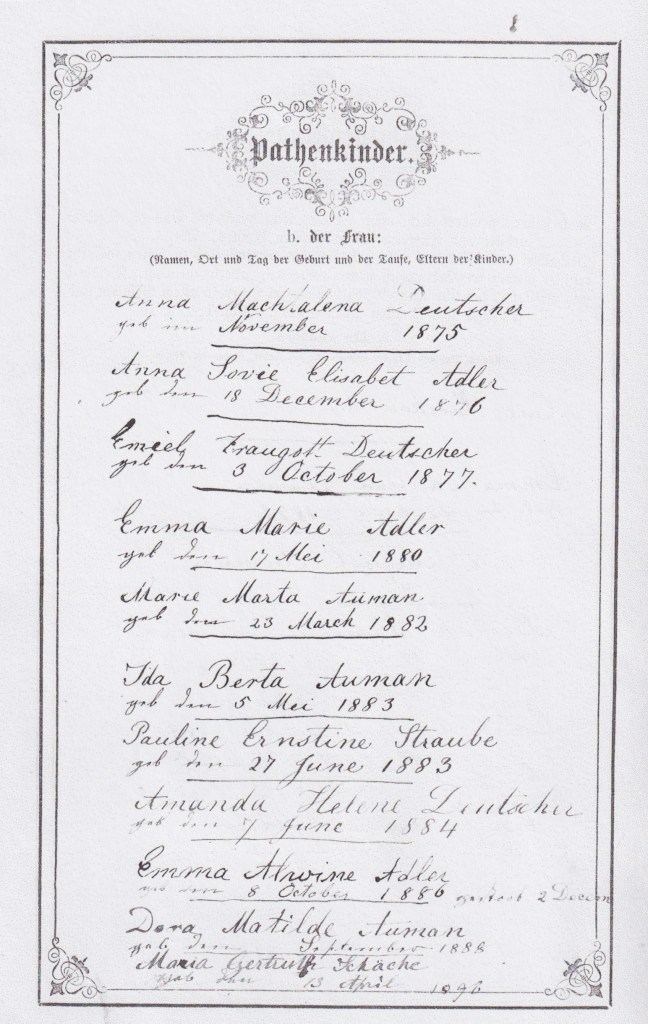 Pathenkinder.
b. der Frau:
(Namen, Ort und Tag der Geburt und der Taufe, Eltern der Kinder.)
Anna Machtalena Deutscher
geb im November 1875
Anna Sovie Elisabet Adler
geb den 18 December 1876
Emiel Traugott Deutscher
geb den 3 October 1877.
Emma Marie Adler
geb den 17 Mei 1880
Marie Marta Auman
geb den 23 March 1882
Ida Berta Auman
geb den 5 Mei 1883
Pauline Ernstine Straube
geb den 27 June 1883
Amanda Helene Deutscher
geb den 7 June 1884
Emma Alwine Adler
geb den 8 October 1886 gestorb 2 Decem
Dora Matilde Auman
geb den September 1888
Maria Gertruth
geb den 13 April 1896